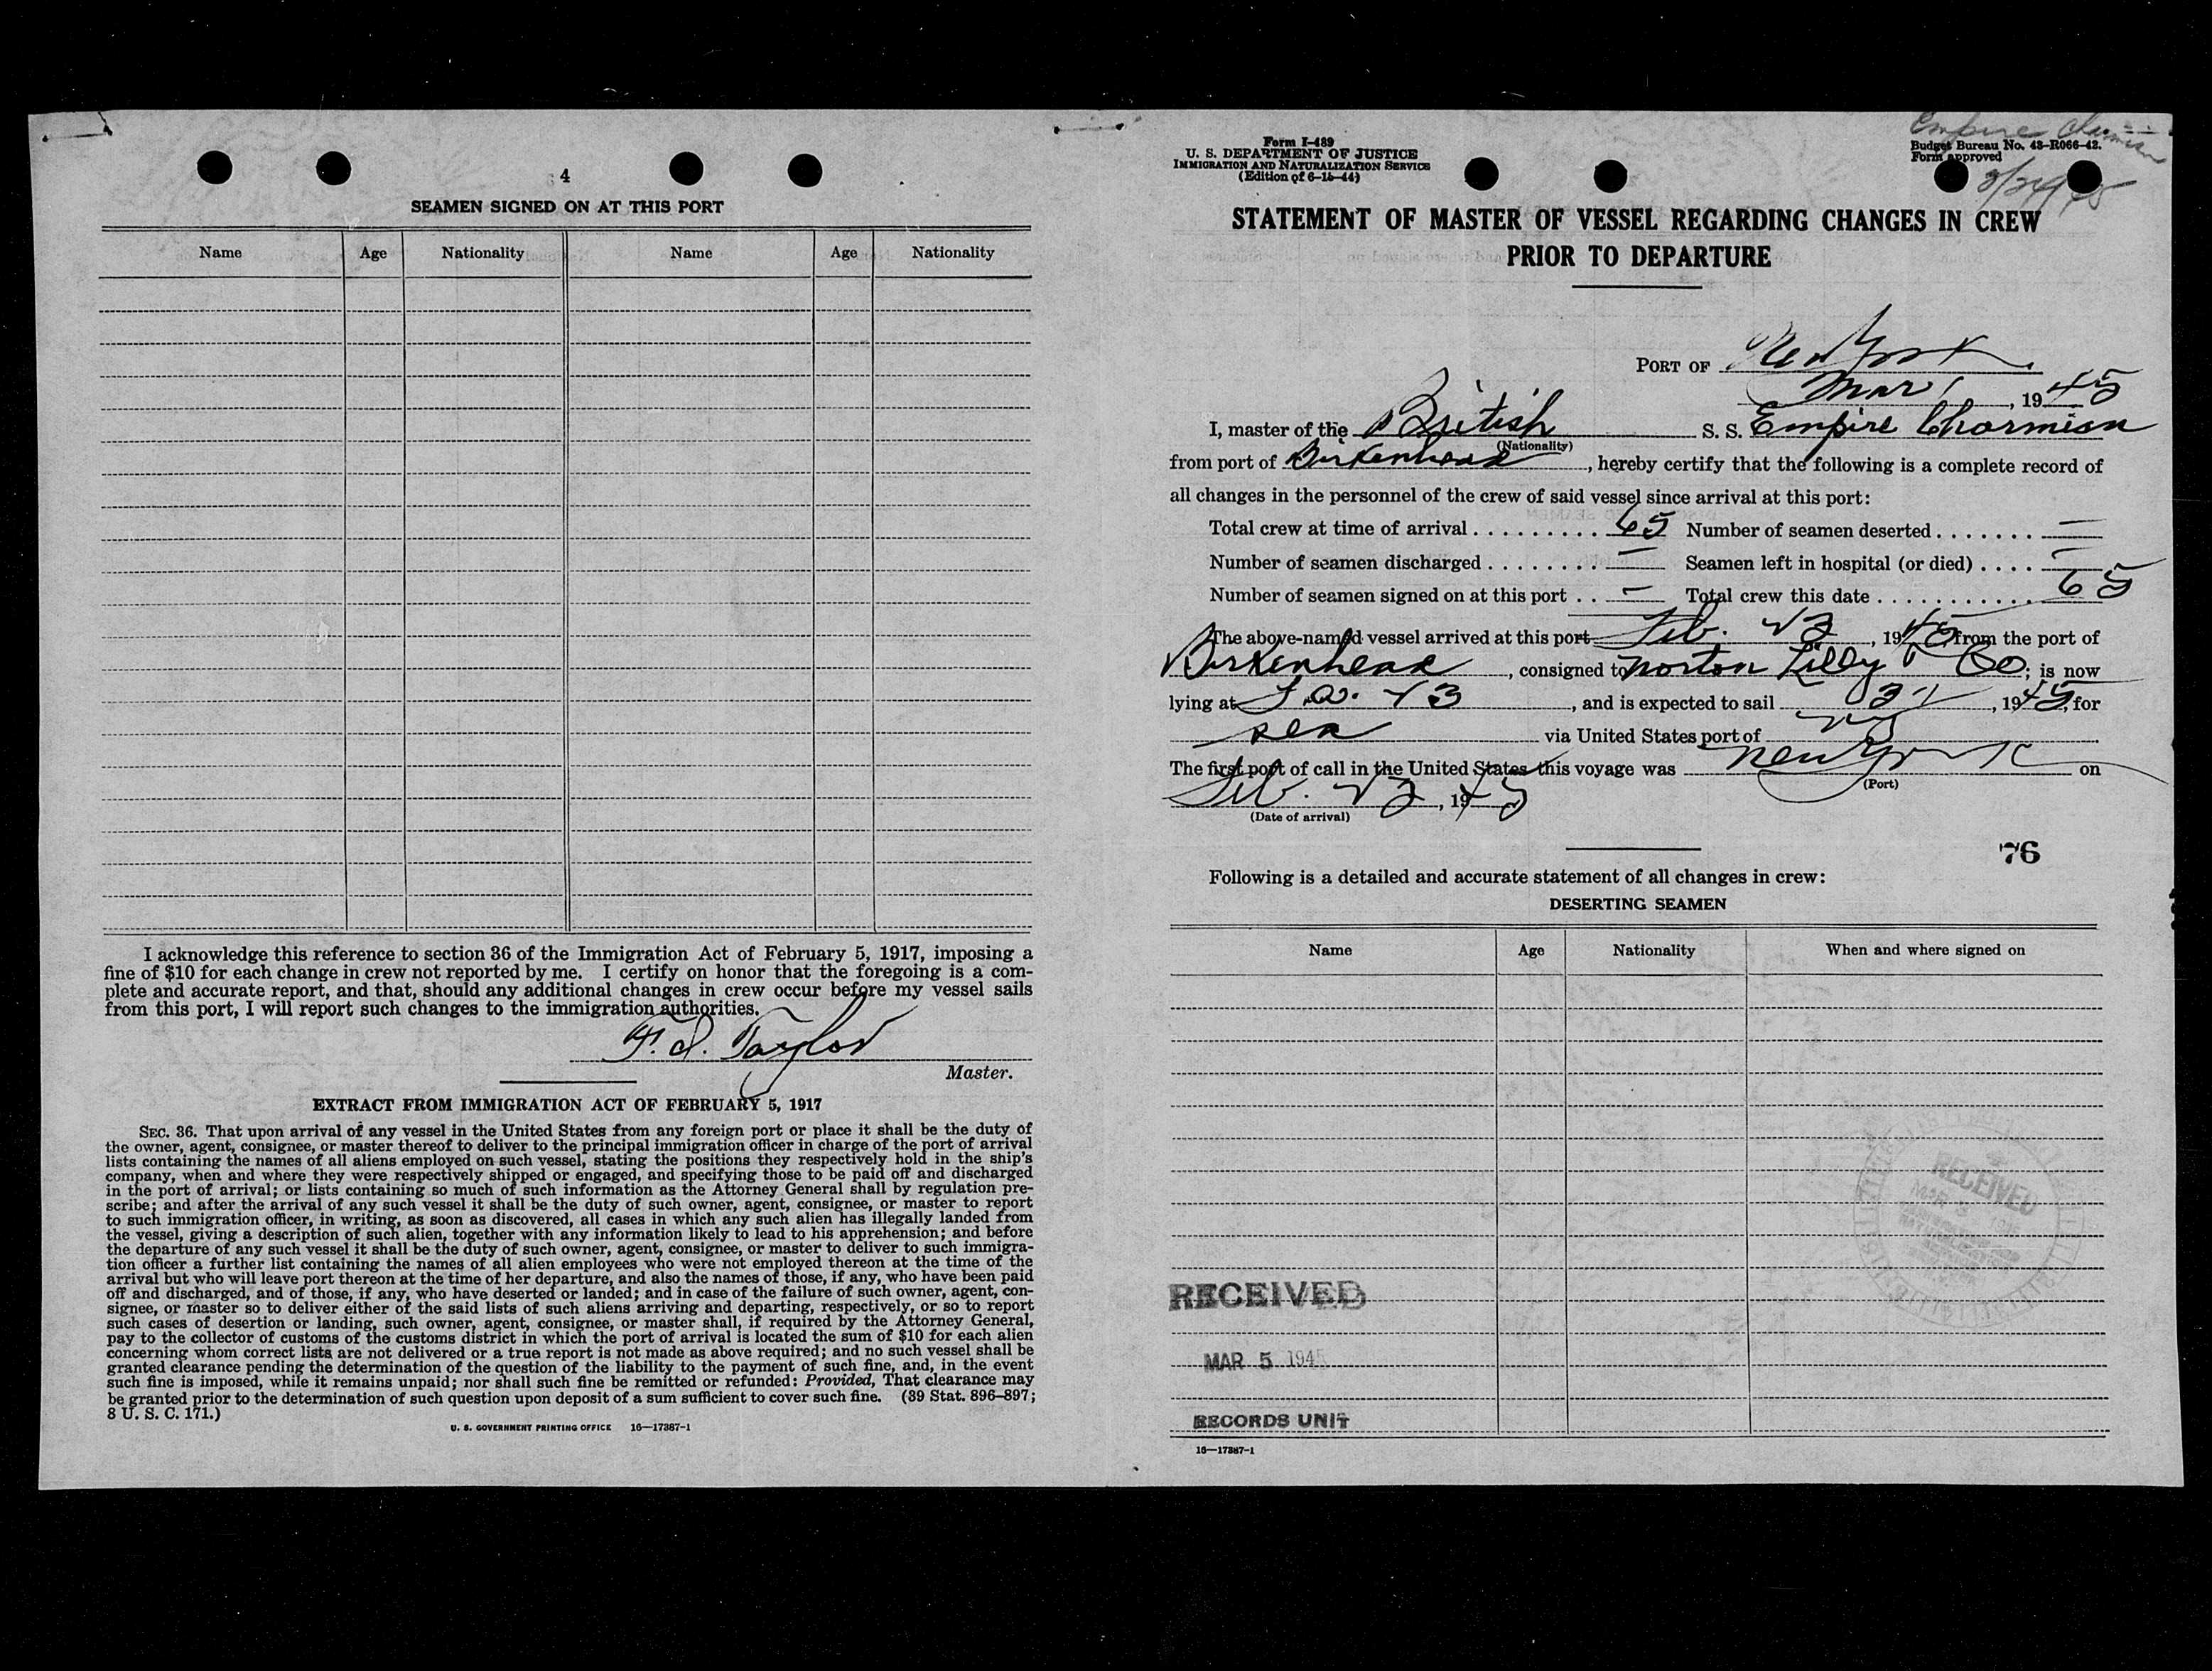 4
SEAMEN SIGNED ON AT THIS PORT
Name Age Nationality Name Age Nationality
I acknowledge this reference to section 36 of the Immigration Act of February 5, 1917, imposing a
fine of $10 for each change in crew not reported by me. I certify on honor that the foregoing is a com-
plete and accurate report, and that, should any additional changes in crew occur before my vessel sails
from this port, I will report such changes to the immigration authorities.
Taylor
Master.
EXTRACT FROM IMMIGRATION ACT OF FEBRUARY 5, 1917
SEC. 36. That upon arrival of any vessel in the United States from any foreign port or place it shall be the duty of
the owner, agent, consignee, or master thereof to deliver to the principal immigration officer in charge of the port of arrival
lists containing the names of all aliens employed on such vessel, stating the positions they respectively hold in the ship's
company, when and where they were respectively shipped or engaged, and specifying those to be paid off and discharged
in the port of arrival; or lists containing so much of such information as the Attorney General shall by regulation pre-
scribe; and after the arrival of any such vessel it shall be the duty of such owner, agent, consignee, or master to report
to such immigration officer, in writing, as soon as discovered, all cases in which any such alien has illegally landed from
the vessel, giving a description of such alien, together with any information likely to lead to his apprehension; and before
the departure of any such vessel it shall be the duty of such owner, agent, consignee, or master to deliver to such immigra-
tion officer a further list containing the names of all alien employees who were not employed thereon at the time of the
arrival but who will leave port thereon at the time of her departure, and also the names of those, if any, who have been paid
off and discharged, and of those, if any, who have deserted or landed; and in case of the failure of such owner, agent, con-
signee, or master so to deliver either of the said lists of such aliens arriving and departing, respectively, or so to report
such cases of desertion or landing, such owner, agent, consignee, or master shall, if required by the Attorney General,
pay to the collector of customs of the customs district in which the port of arrival is located the sum of $10 for each alien
concerning whom correct lists are not delivered or a true report is not made as above required; and no such vessel shall be
granted clearance pending the determination of the question of the liability to the payment of such fine, and, in the event
such fine is imposed, while it remains unpaid; nor shall such fine be remitted or refunded: Provided, That clearance may
be granted prior to the determination of such question upon deposit of a sum sufficient to cover such fine. (39 Stat. 896–897;
8 U. S. C. 171.)
U. S. GOVERNMENT PRINTING OFFICE 16—17387-1
Form I-489
U. S. DEPARTMENT OF JUSTICE
IMMIGRATION AND NATURALIZATION SERVICE
(Edition of 6-15-44)
Empire Charmian
Budget Bureau No. 43-R066-42.
Form approved
STATEMENT OF MASTER OF VESSEL REGARDING CHANGES IN CREW
PRIOR TO DEPARTURE
PORT OF New York
Mar 1, 1945
I, master of the British S. S. Empire Charmian
(Nationality)
from port of Birkenhead, hereby certify that the following is a complete record of
all changes in the personnel of the crew of said vessel since arrival at this port:
Total crew at time of arrival 65 Number of seamen deserted —
Number of seamen discharged — Seamen left in hospital (or died) —
Number of seamen signed on at this port — Total crew this date 65
The above-named vessel arrived at this port Feb. 23, 1945 from the port of
Birkenhead, consigned to Norton Lilly & Co; is now
lying at, and is expected to sail, 1945, for
sea via United States port of
The first port of call in the United States this voyage was New York on
(Port)
Feb. 23, 1945
(Date of arrival)
76
Following is a detailed and accurate statement of all changes in crew:
DESERTING SEAMEN
Name Age Nationality When and where signed on
RECEIVED
RECEIVED
MAR 5 1945
RECORDS UNIT
16—17387-1